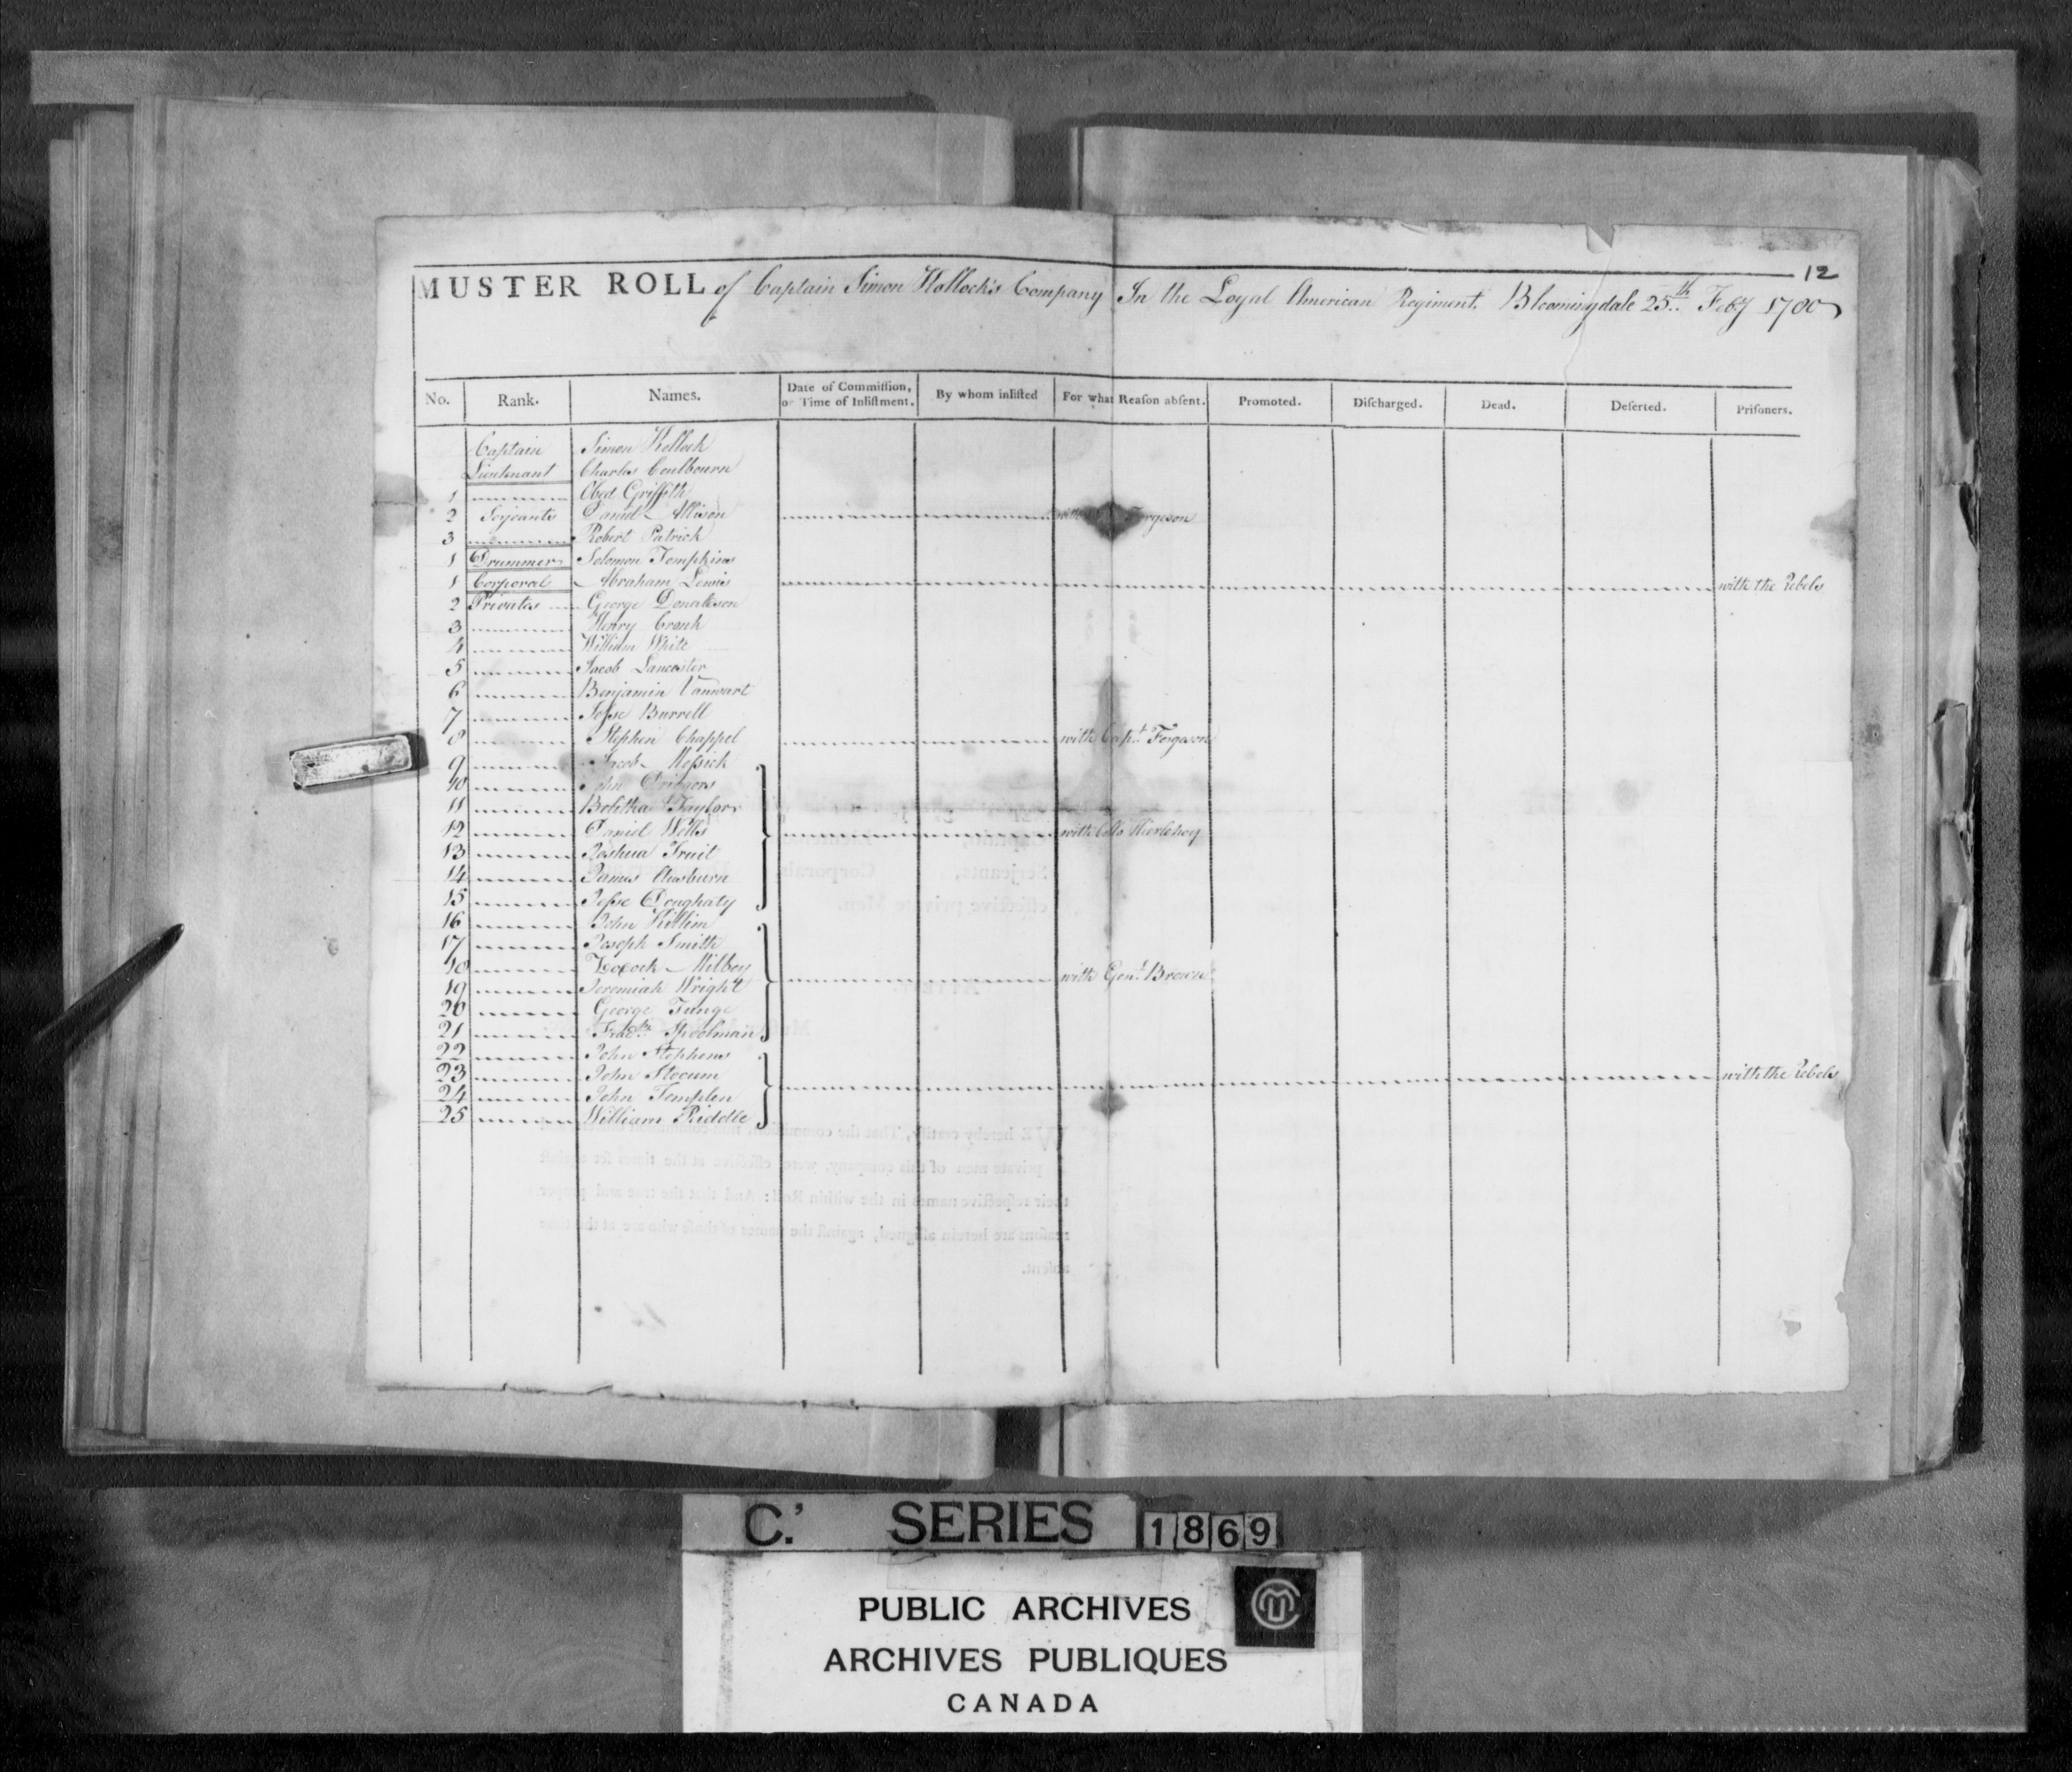 12
MUSTER ROLL of Captain Simon Kollock's Company In the Loyal American Regiment. Bloomingdale 25th Feby 1780
No. Rank. Names. Date of Commiſſion, or Time of Inliſtment. By whom inliſted For what Reaſon abſent. Promoted. Diſcharged. Dead. Deſerted. Priſoners.
Captain Simon Kollock
Lieutenant Charles Coulbourn
1 Obed Griffith
2 Serjeants Daniel Allison Fergeson
3 Robert Patrick
1 Drummer Solomon Tompkins
1 Corporal Abraham Lewis with the Rebels
2 Privates George Donaldson
3 Henry Cronk
4 William White
5 Jacob Lancaster
6 Benjamin Vanwart
7 Jeſse Burrell
8 Stephen Chappel with Capt. Fergeson
9 Jacob Meſsick
10 John
11 Taylor
12 Daniel Wells with Collo
13 Joshua Fruit
14 James
15 Jeſse Doughaty
16 John Killim
17 Joseph Smith
18 Milbey
19 Jeremiah Wright with Genl. Brown
20 George
21 Spoolman
22 John Stephens
23 John Slocum with the Rebels
24 John Templen
25 William Riddle
C.' SERIES 1869
PUBLIC ARCHIVES
ARCHIVES PUBLIQUES
CANADA